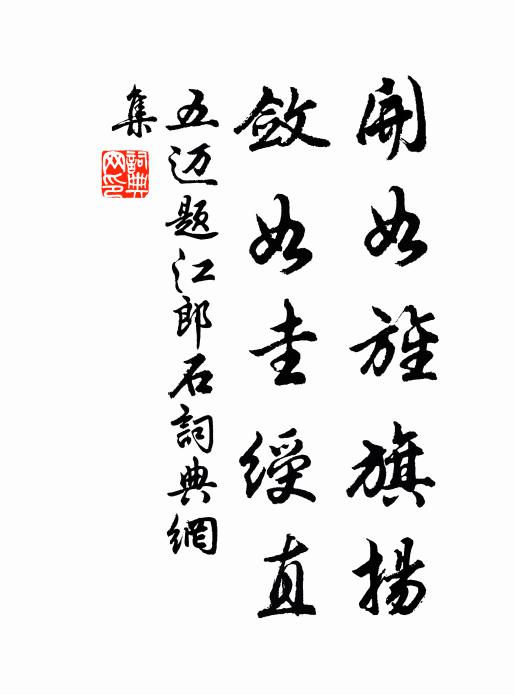 開如旌旗揚
斂如圭綬直
五迈题江郎石詞典網
集
詞典網印